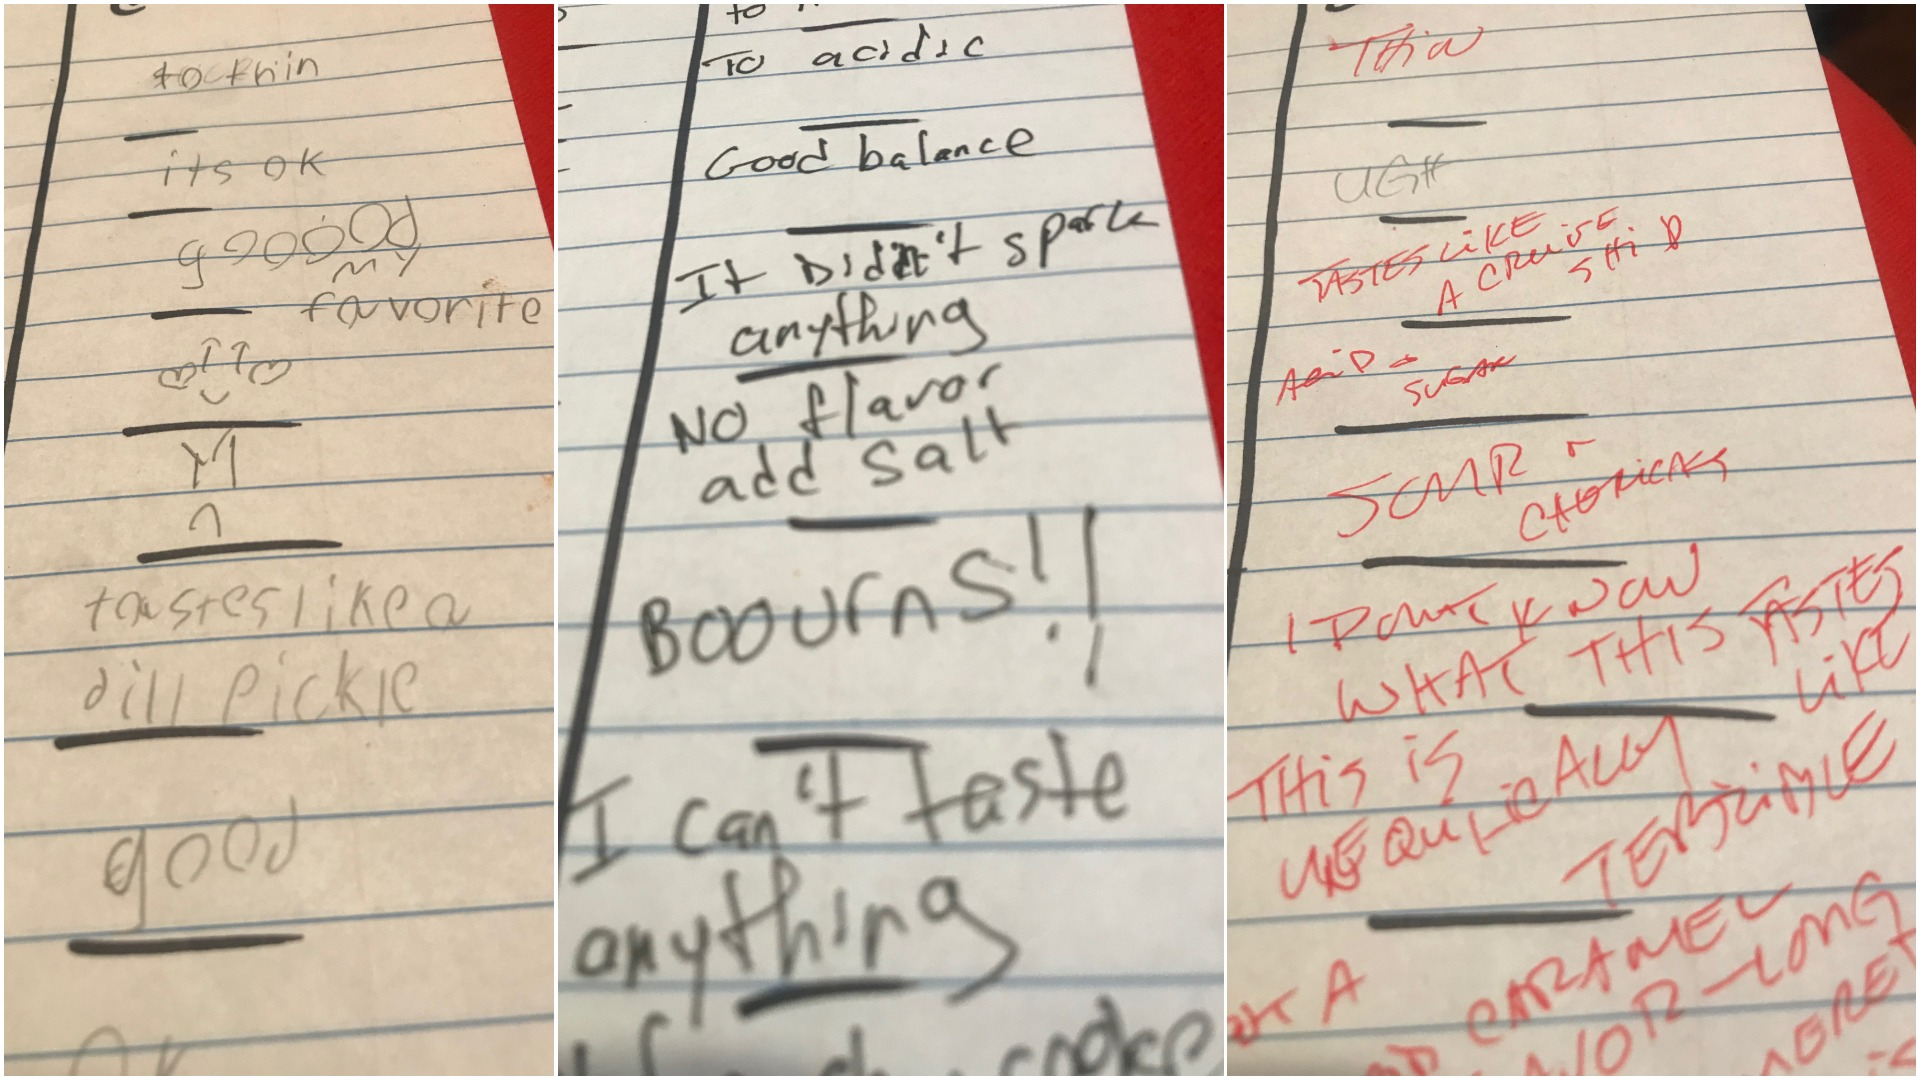 tochin
its ok
gooood
my
favorite
M
tastes like a
dill pickle
good
OK
to
To acidic
Good balance
It Didn't spark
anything
No flavor
add salt
Boourns!!
I can't taste
anything
Thin
UGH
TASTES LIKE
A CRUISE
SHIP
ACID +
SUGAR
SOUR +
CHEMICALS
I DON'T KNOW
WHAT THIS TASTES
LIKE
THIS IS
UNEQUIVICALLY
TERRIBLE
A
CARAMEL
LONG